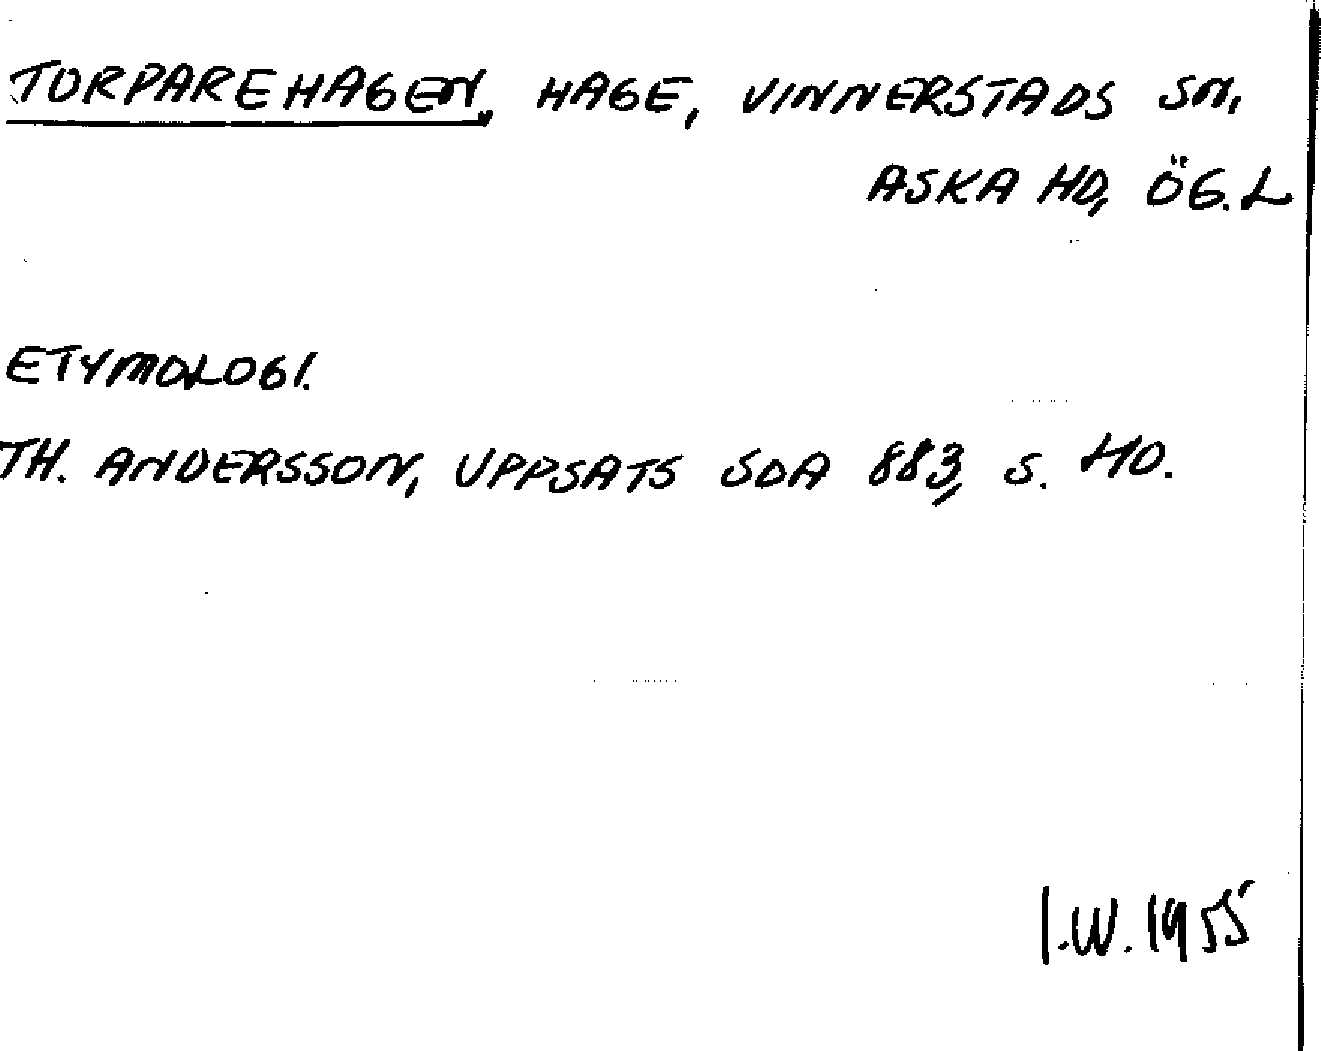 TORPAREHAGEN, HAGE, VINNERSTADS SN,
ASKA HD, ÖG.L
ETYMOLOGI.
TH. ANDERSSON, UPPSATS SOA 883, S. 40.
I.W. 1955